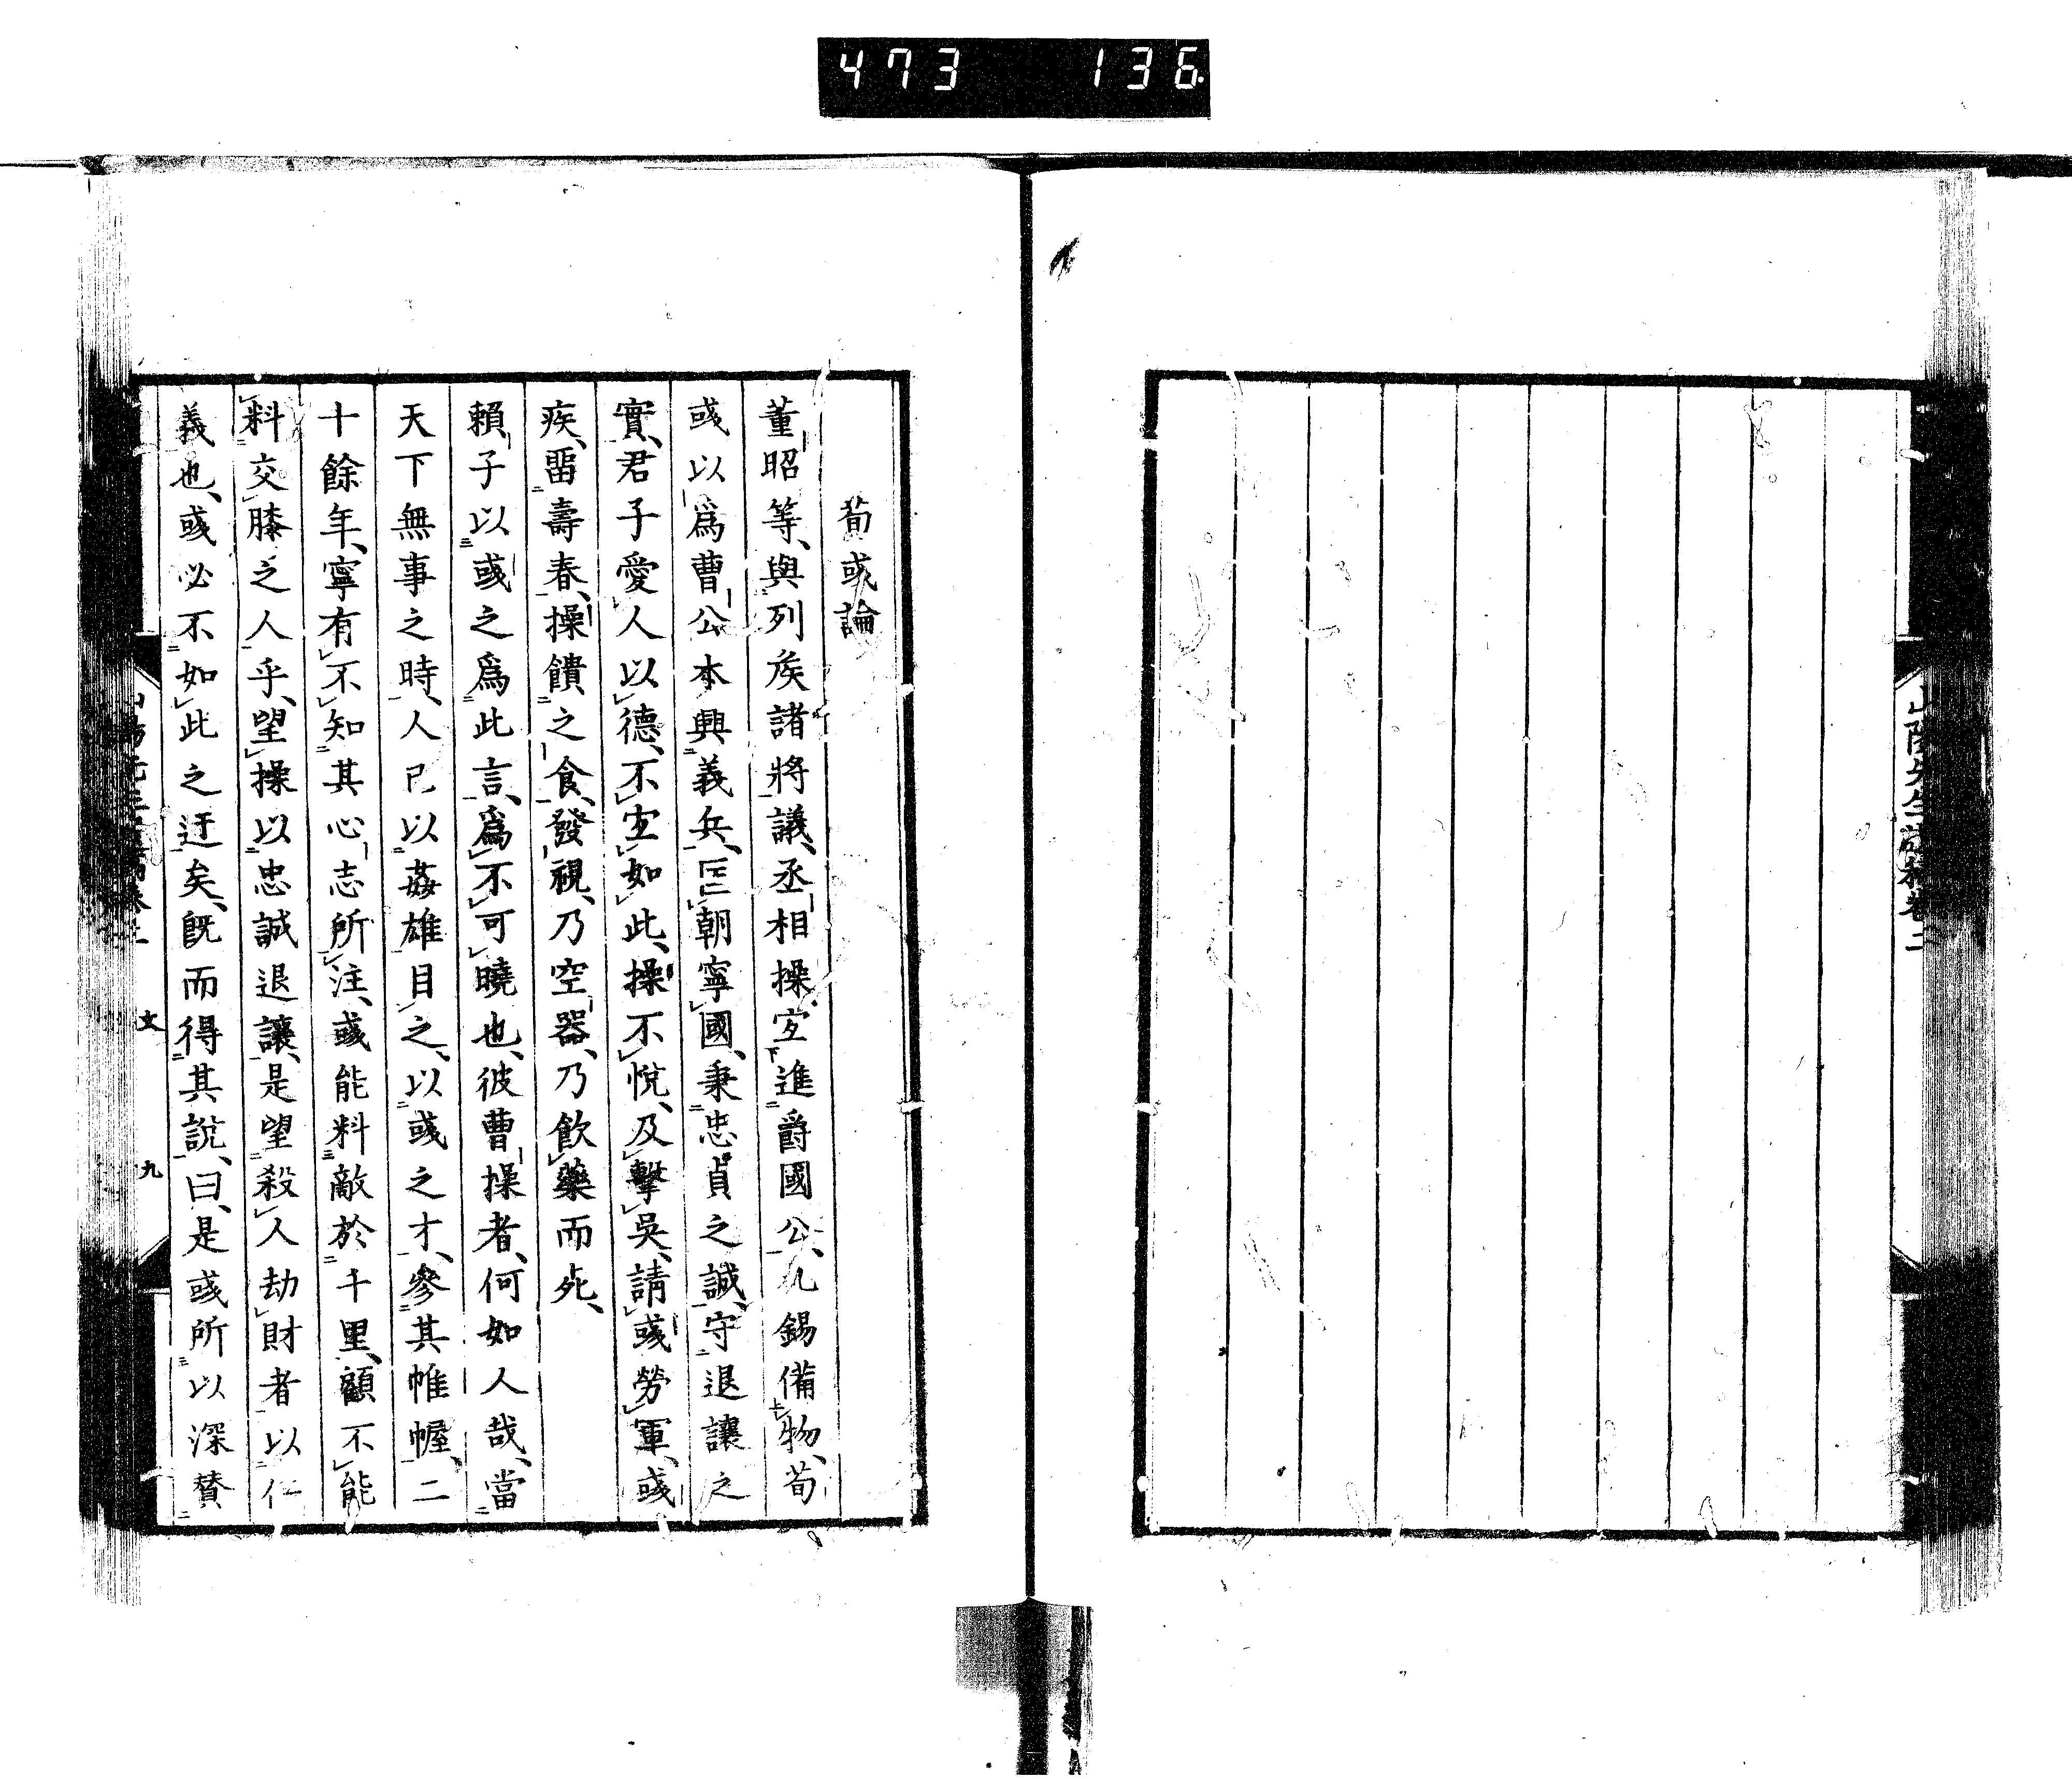 473 136
山陽先生遺稿卷二
荀彧論
董昭等、與列矦諸將議、丞相操宜進爵國公、九錫備物、荀
彧以爲曹公本興義兵、匡朝寧國、秉忠貞之誠、守退讓之
實、君子愛人以德、不宜如此、操不悅、及擊吳、請彧勞軍、彧
疾、畱壽春、操饋之食、發視、乃空器、乃飲藥而死、
賴子以彧之爲此言、爲不可曉也、彼曹操者、何如人哉、當
天下無事之時、人已以姦雄目之、以彧之才、參其帷幄、二
十餘年、寧有不知其心志所注、彧能料敵於千里、顧不能
料交膝之人乎、望操以忠誠退讓、是望殺人劫財者以仁
義也、彧必不如此之迂矣、旣而得其說、曰、是彧所以深贊
文 九